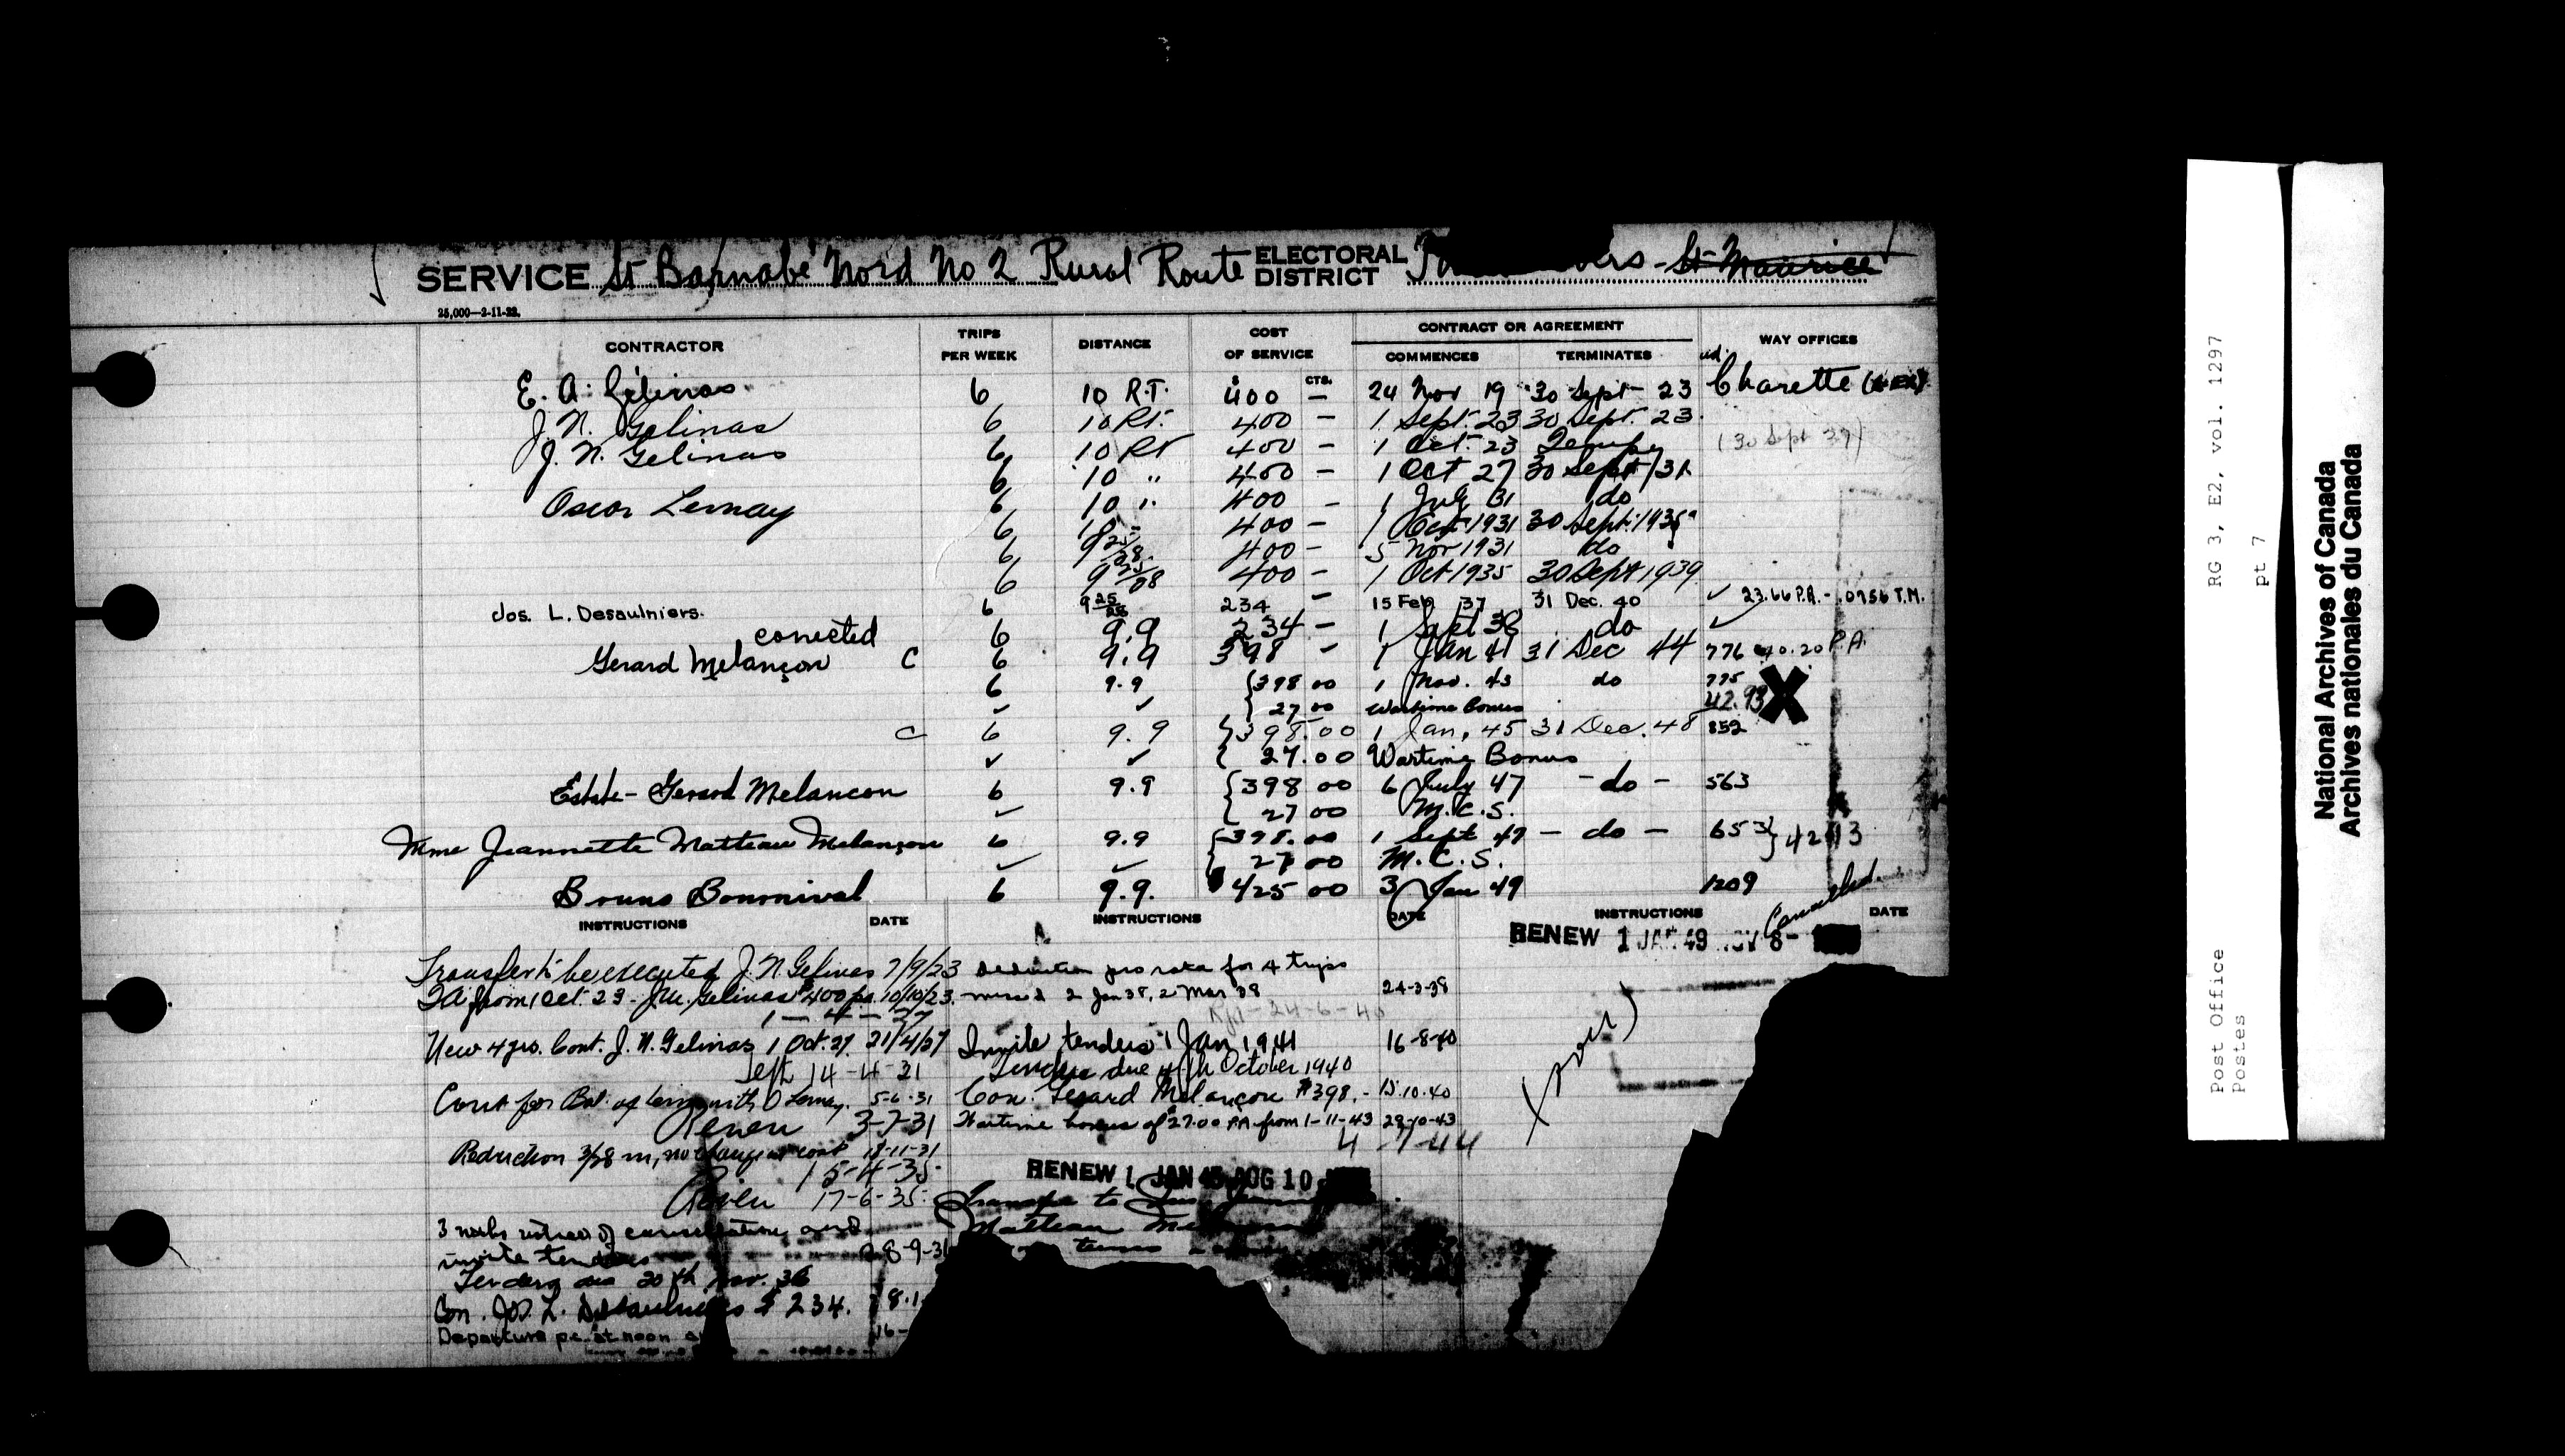 SERVICE St Barnabé Nord No 2 Rural Route ELECTORAL DISTRICT St Maurice
25,000—2-11-22.
CONTRACTOR TRIPS PER WEEK DISTANCE COST OF SERVICE CONTRACT OR AGREEMENT COMMENCES TERMINATES WAY OFFICES
$ CTS.
E. A. Gélinas 6 10 R.T. 400 — 24 Nov 19 30 Sept 23 Charette
J. N. Gelinas 6 10 RT. 400 — 1 Sept. 23 30 Sept. 23
J. N. Gelinas 6 10 RT 400 — 1 Oct. 23 Temp. (30 Sept 27)
6 10 " 400 — 1 Oct 27 30 Sept/31
Oscar Lemay 6 10 " 400 — 1 July 31 do
6 10 400 — 1 Oct 1931 30 Sept. 1935
6 9 25/28 400 — 5 Nov 1931 do
6 9 25/28 400 — 1 Oct 1935 30 Sept 1939
Jos. L. Desaulniers. 6 9 25/28 234 — 15 Feb 37 31 Dec. 40 ✓ 23.66 P.A. - .0756 T.M.
corrected 6 9.9 234 — 1 Sept 38 do ✓
Gerard Melançon C 6 9.9 398 — 1 Jan 41 31 Dec 44 776 40.20 P.A.
6 9.9 {398 00 1 Nov. 43 do 775
✓ ✓ 27 00 Wartime Bonus 42.93 X
C 6 9.9 {398.00 1 Jan, 45 31 Dec. 48 852
✓ ✓ 27.00 Wartime Bonus
Estate - Gerard Melancon 6 9.9 {398 00 6 July 47 - do - 563
✓ 27 00 M.C.S.
Mme Jeannette Matteau Melançon 6 9.9 {398.00 1 Sept 47 - do - 653
✓ ✓ 27 00 M.C.S.
Bruno Bournival 6 9.9. 425 00 3 Jan 49 1209
INSTRUCTIONS DATE INSTRUCTIONS DATE INSTRUCTIONS DATE
RENEW 1 JAN 49 NOV 8- Cancelled.
Transfer to be executed J. N. Gelinas 7/9/23
TA from 1 Oct 23 - J.N. Gelinas $400 pa 10/10/23.
1 - 4 - 27
New 4 yrs. Cont. J. N. Gelinas 1 Oct. 27. 21/4/27
14-4-31
Cont for Bal. of term with O Lemay. 5-6-31
Renew 3-7-31
Reduction 3/28 m, no change in cost 18-11-31
15-4-35
Renew 17-6-35
3 weeks notice of cancellation, and
invite tenders 8-9-36
Tenders due 20th Nov. 36
Con. Jos. L. Desaulniers $234.
Departure p.c. at noon
Deduction pro rata for 4 trips
missed 2 Jan 38, 2 Mar 38 24-3-38
24-6-40
Invite tenders 1 Jan 1941 16-8-40
Tenders due 4th October 1940
Con. Gerard Melançon $398.- 15.10.40
Wartime bonus of $27.00 P.A from 1-11-43 29-10-43
4-7-44
RENEW 1 JAN 45 AUG 10
Transfer to
Matteau Melançon
terms
RG 3, E2, vol. 1297
pt 7
Post Office
Postes
National Archives of Canada
Archives nationales du Canada